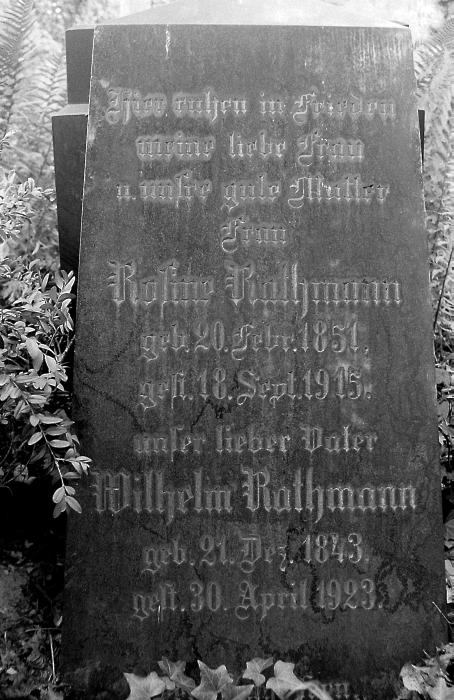 Hier ruhen in Frieden
meine liebe Frau
u. unsre gute Mutter
Frau
Rosine Rathmann
geb. 20. Febr. 1851,
gest. 18. Sept. 1915.
unser lieber Vater
Wilhelm Rathmann
geb. 21. Dez. 1843,
gest. 30. April 1923.